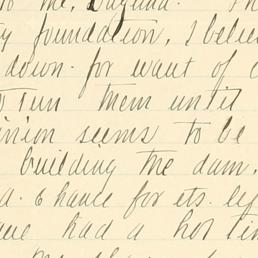 to Mr.
foundation. I belie
down. for want of
to run them until
inion seems to be
building the dam.
a. chance for its.
ave had a hot tim